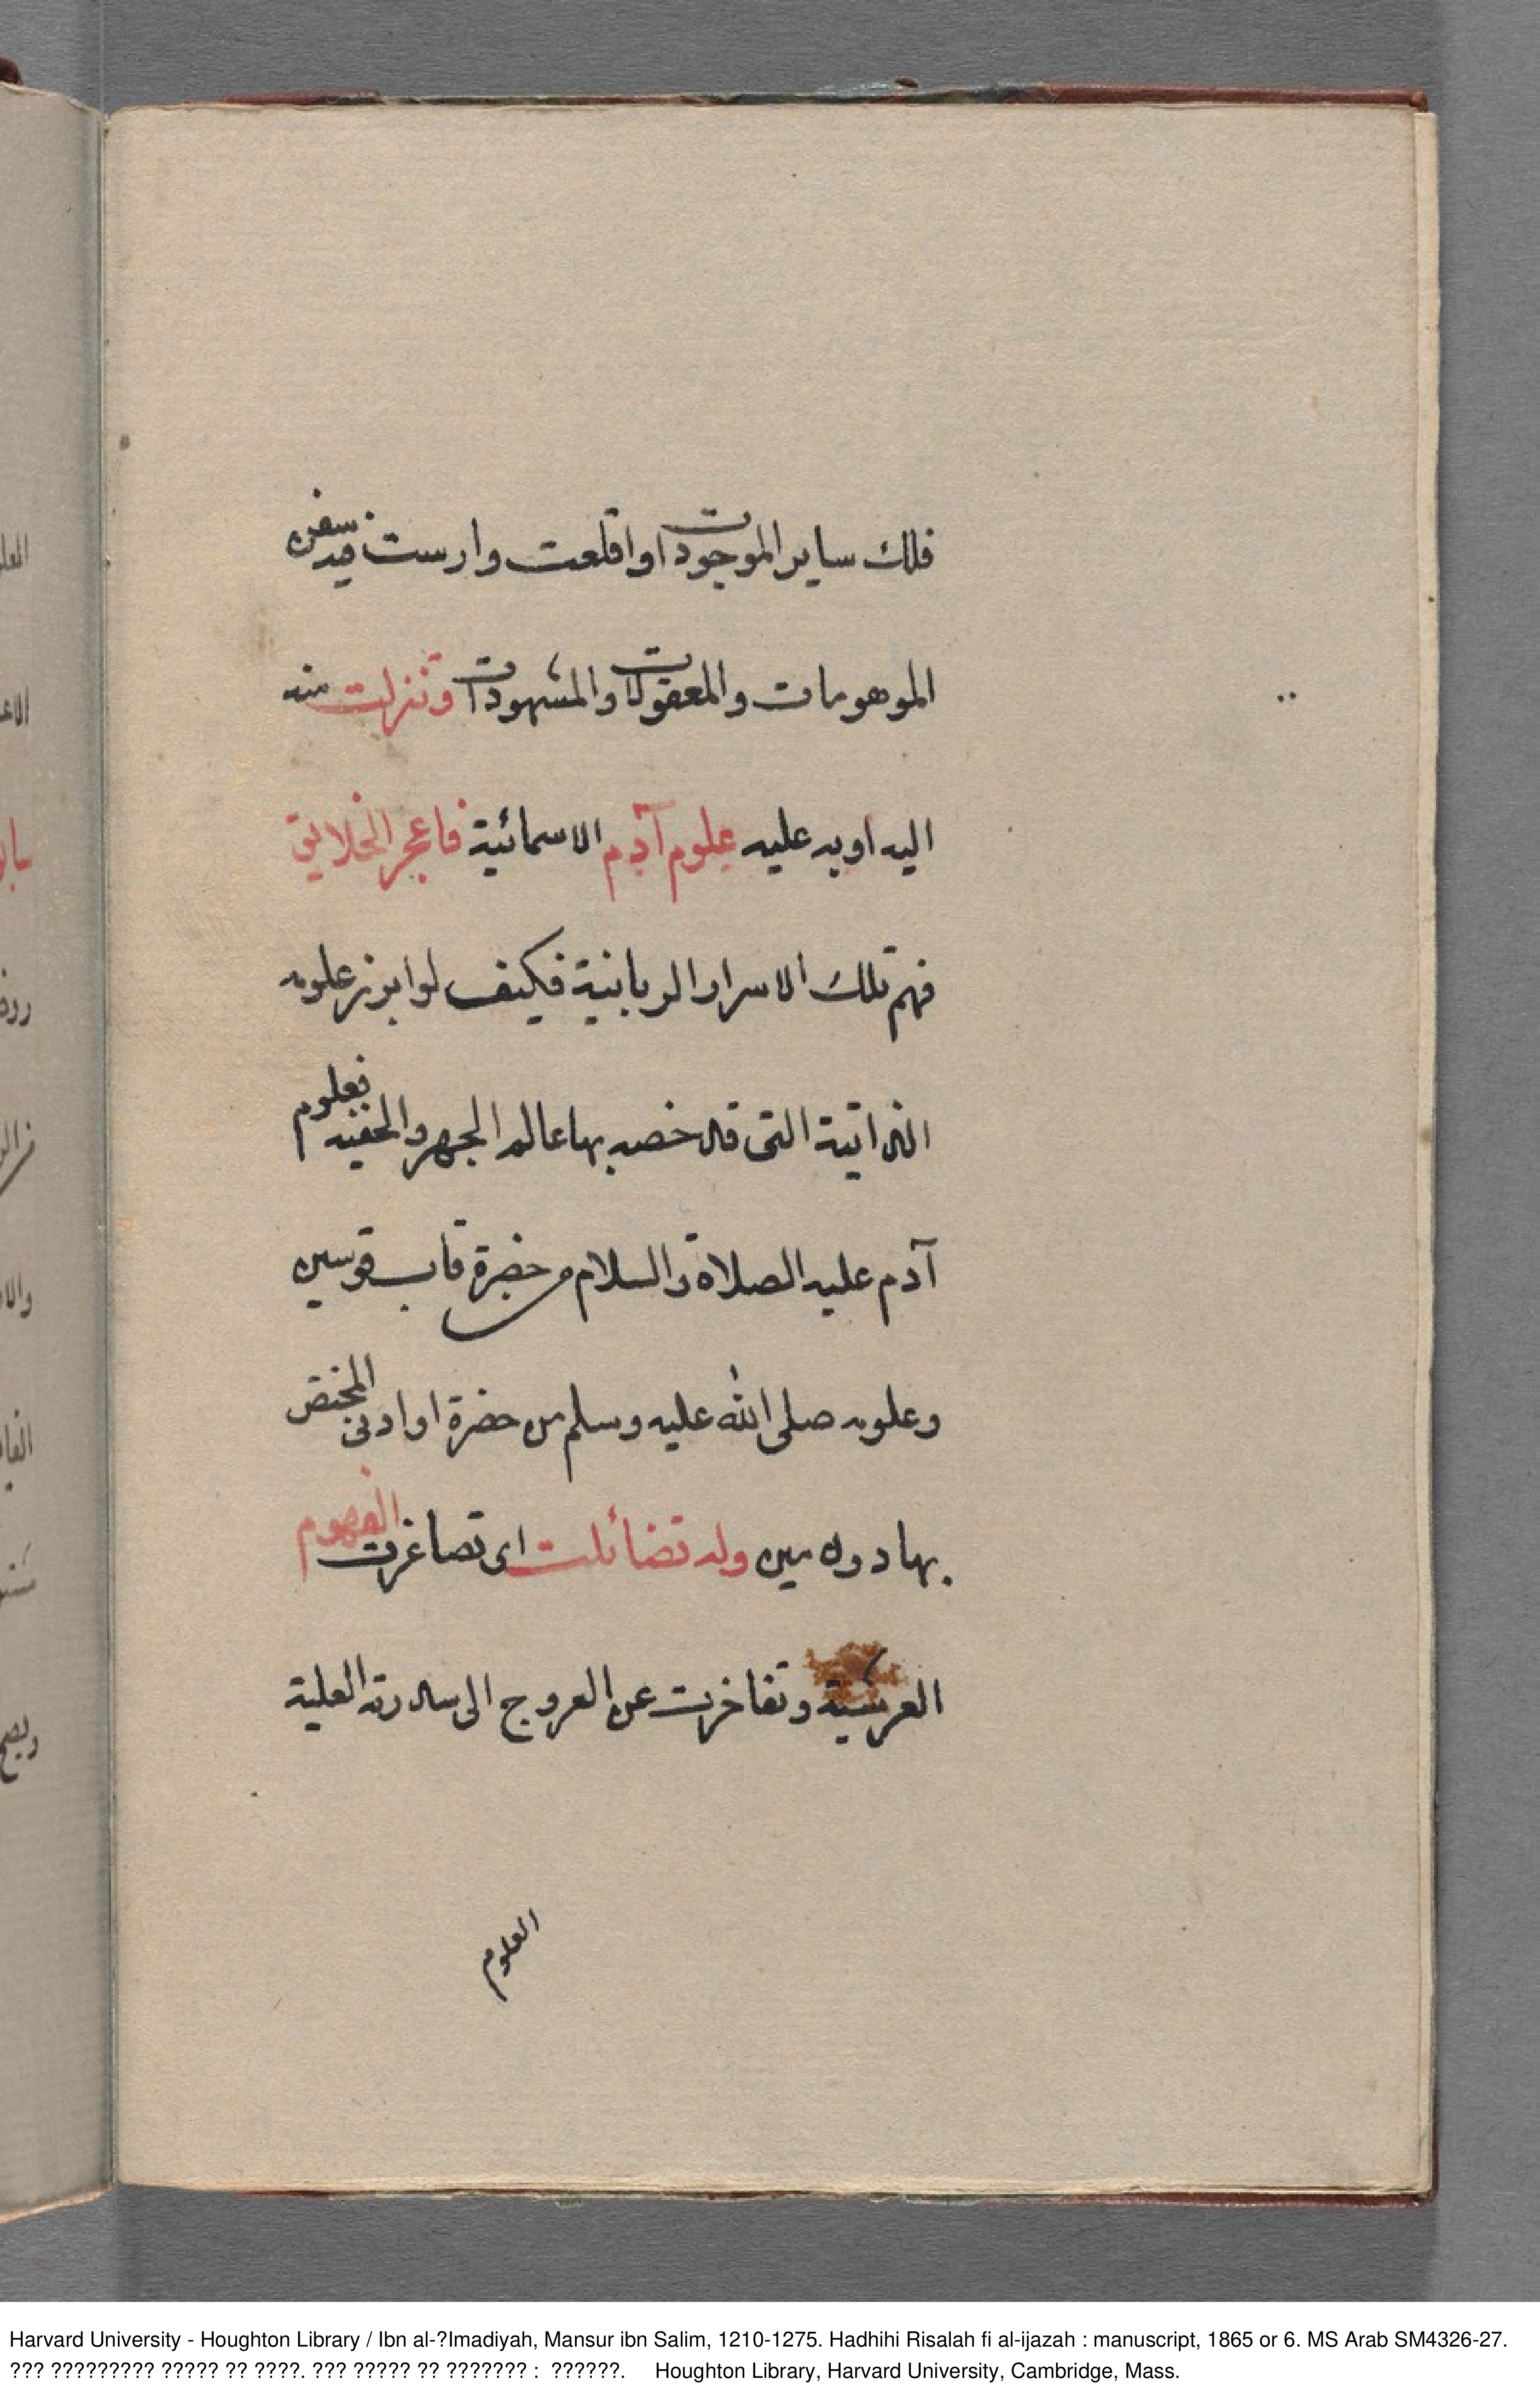 فلك ساير الموجودات او اقلعت وارست فيه سفن
الموهومات والمعقولات والمشهودات وتنزلت منه
اليه او به عليه علوم آدم الاسمائية فاعجز الخلايق
فهم تلك الاسرار الربانية فكيف لو ابرز علومه
الذاتية التى قد خصه بها عالم الجهر والخفيه فعلوم
آدم عليه الصلاة والسلام من حضرة قاب قوسين
وعلومه صلى الله عليه وسلم من حضرة او ادنى المختص
بها دون مين وله تضائلت اى تصاغرت الفهوم
العرشية وتفاخرت عن العروج الى سدرته العلية
العلوم
Harvard University - Houghton Library / Ibn al-?Imadiyah, Mansur ibn Salim, 1210-1275. Hadhihi Risalah fi al-ijazah : manuscript, 1865 or 6. MS Arab SM4326-27.
??? ????????? ????? ?? ????. ??? ????? ?? ??????? : ??????. Houghton Library, Harvard University, Cambridge, Mass.